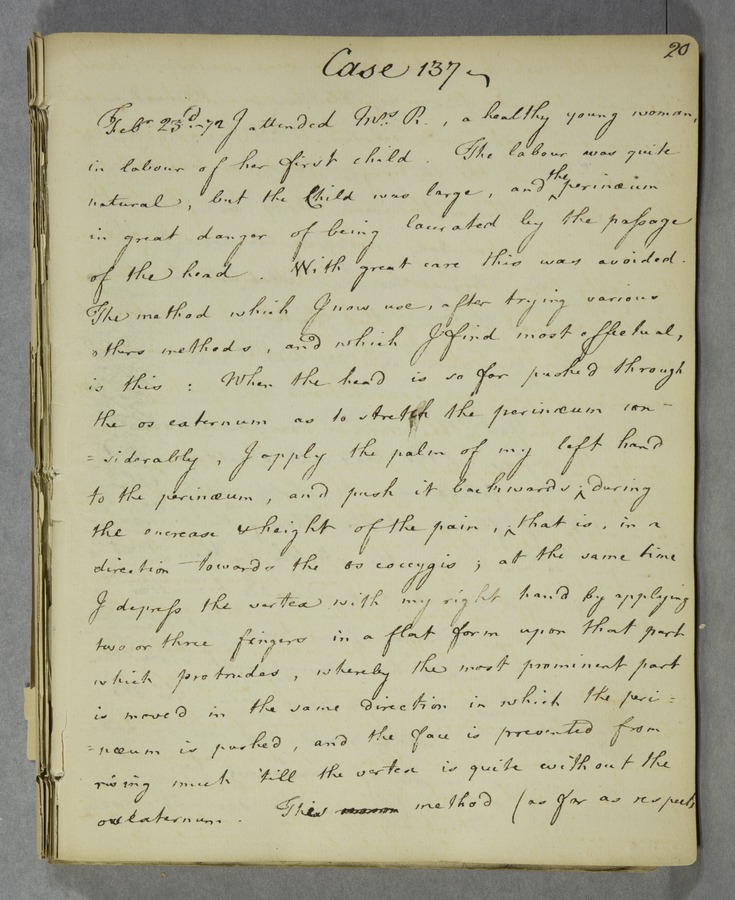 20
Case 137
Febr 23d.-72 I attended Mrs R., a healthy young woman,
in labour of her first child. The labour was quite
natural, but the Child was large, and the perinæum
in great danger of being lacerated by the passage
of the head. With great care this was avoided.
The method which I now use, after trying various
others methods, and which I find most effectual,
is this: When the head is so far pushed through
the os externum as to stretch the perinæum con-
=siderably, I apply the palm of my left hand
to the perinæum, and push it backwards, during
the encrease & height of the pain, that is, in a
direction towards the os coccygis; at the same time
I depress the vertex with my right hand by applying
two or three fingers in a flat form upon that part
which protrudes, whereby the most prominent part
is moved in the same direction in which the peri=
=næum is pushed, and the face is prevented from
rising much 'till the vertex is quite without the
os externum. This method (as far as respects